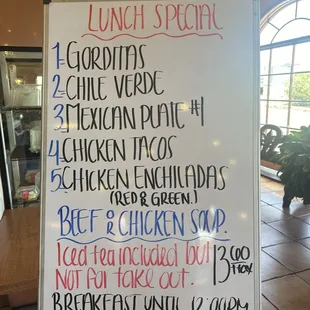 LUNCH SPECIAL
1=GORDITAS
2=CHILE VERDE
3=MEXICAN PLATE #1
4.CHICKEN TACOS
5.CHICKEN ENCHILADAS
(RED & GREEN.)
BEEF OR CHICKEN SOUP.
Iced tea included but
NOT for take out.
BREAKFAST UNTIL 12:00PM